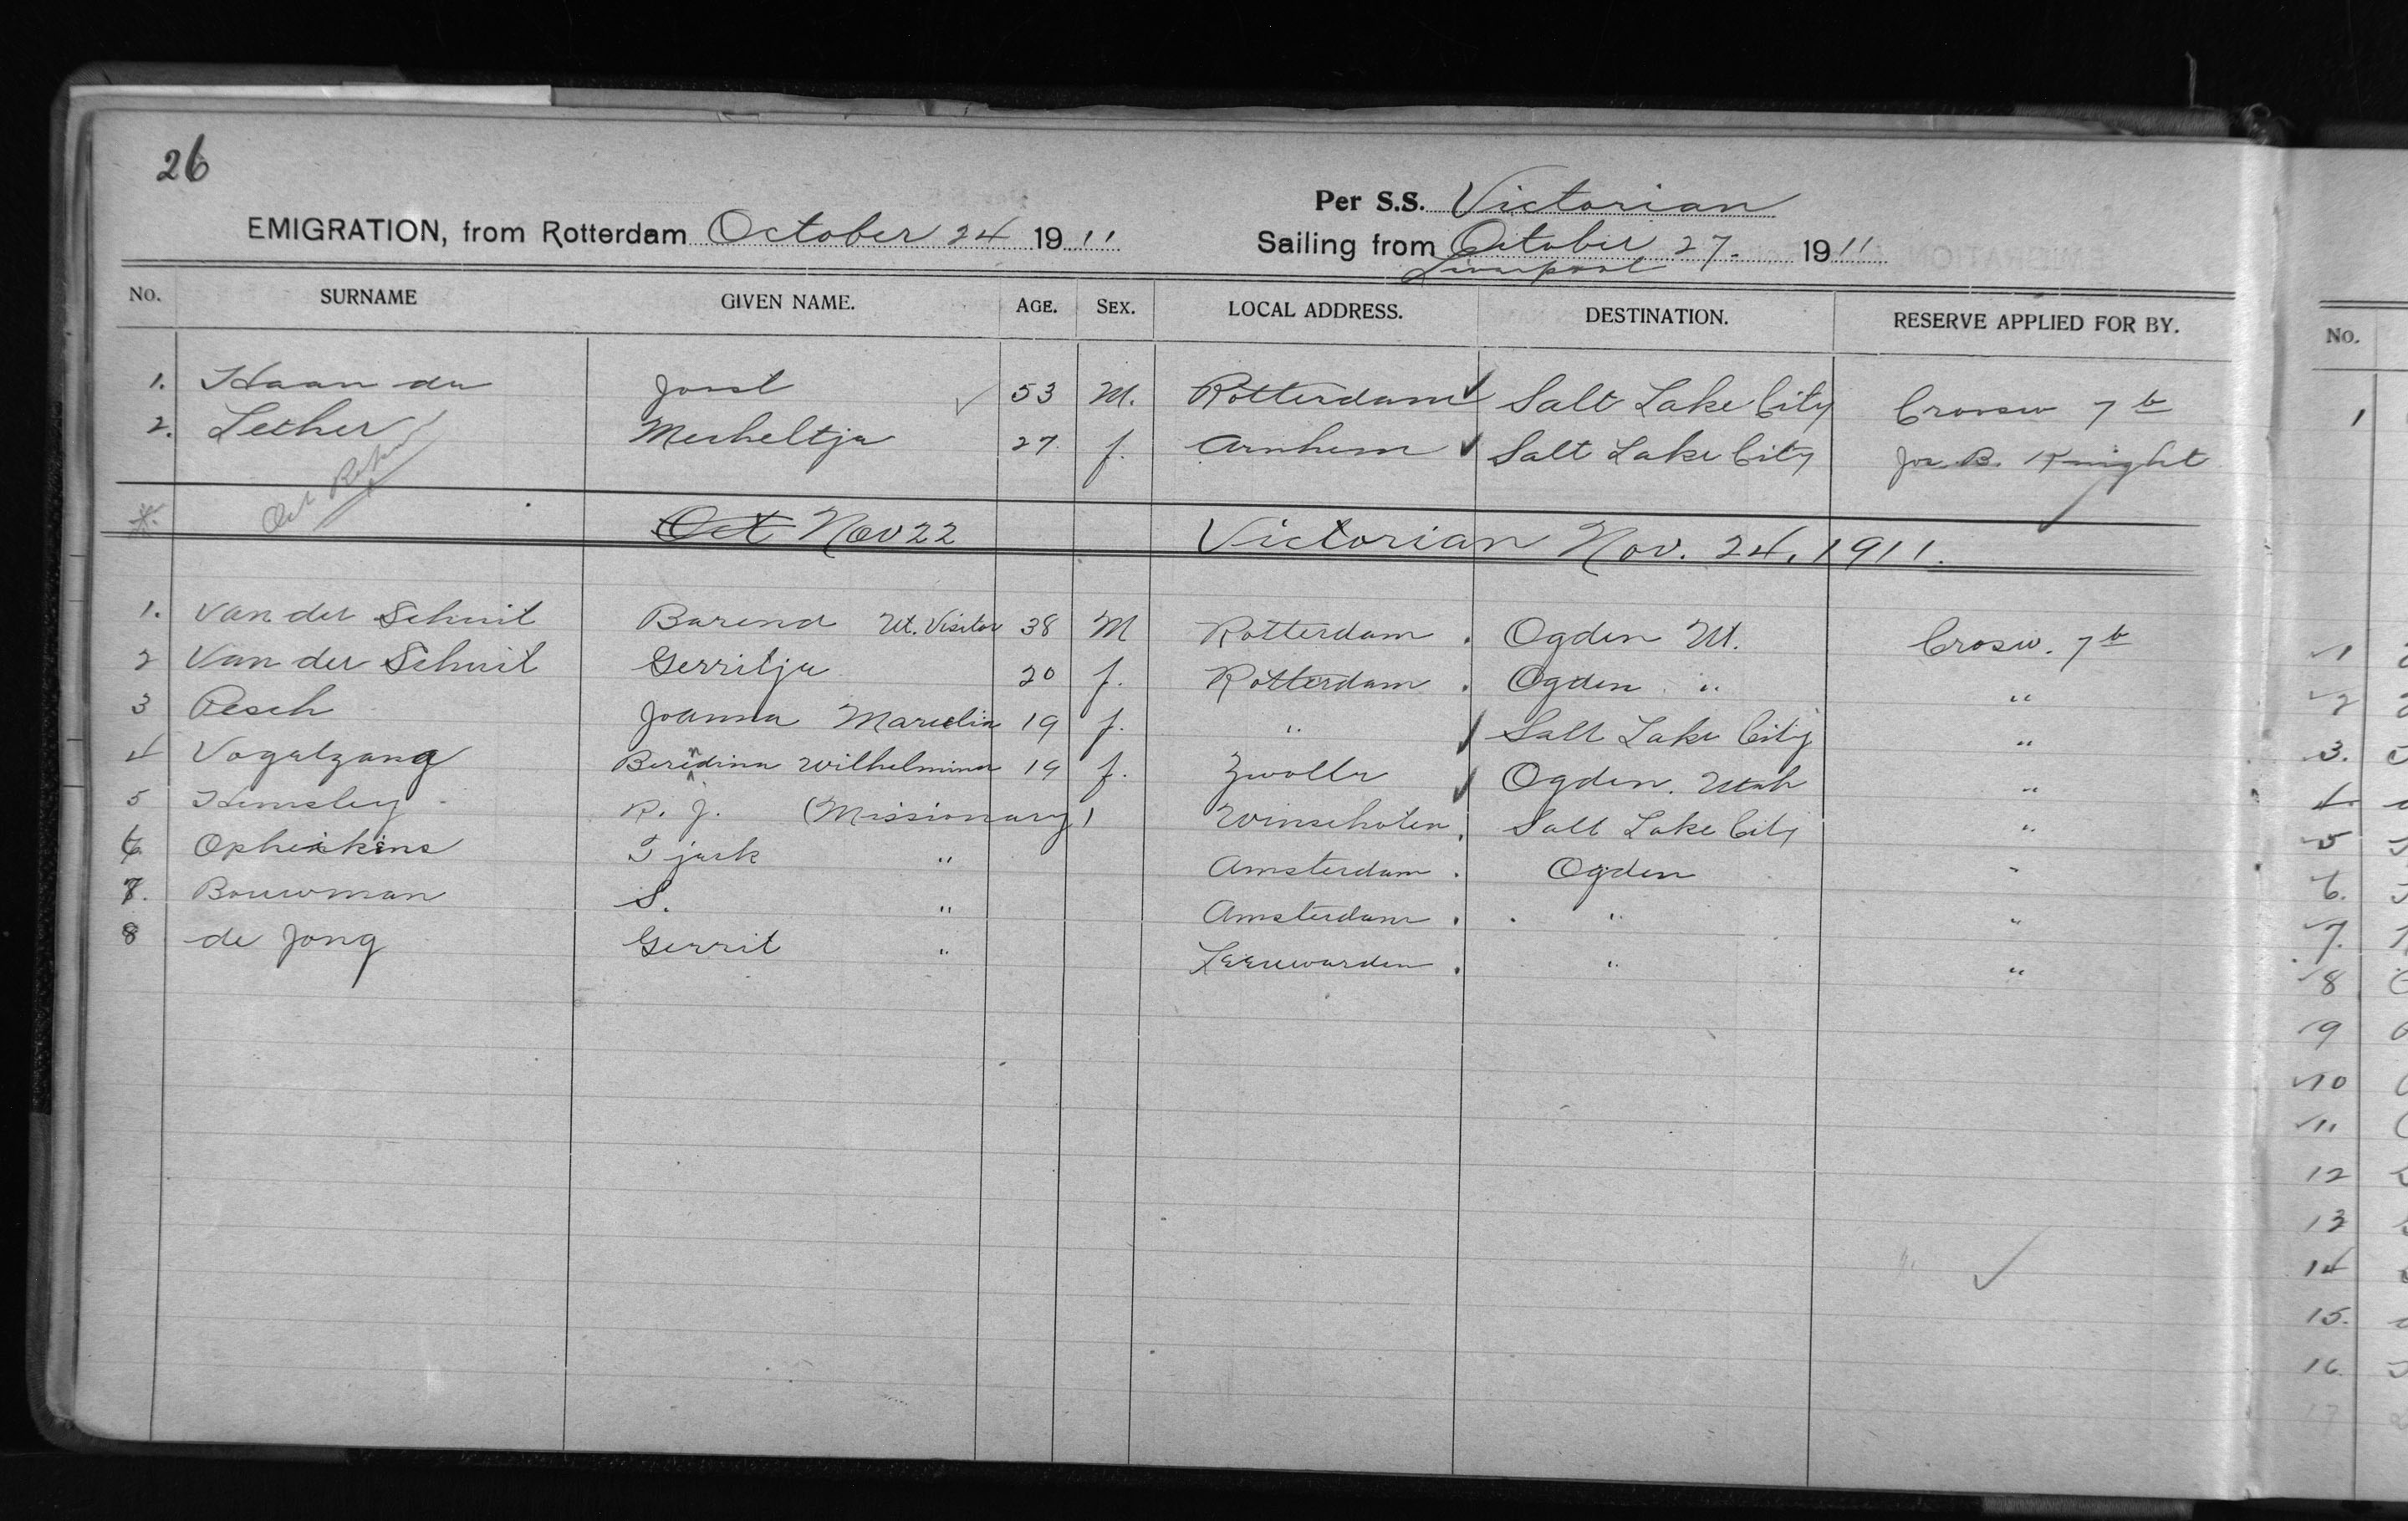 26
Per S.S. Victorian
EMIGRATION, from Rotterdam October 24 1911
Sailing from October 27. 1911
Liverpool
No. SURNAME GIVEN NAME. AGE. SEX. LOCAL ADDRESS. DESTINATION. RESERVE APPLIED FOR BY.
1. Haan de Joost 53 M. Rotterdam Salt Lake City 7
2. Lether Mecheltje 27 f. Arnhem Salt Lake City Jos. B. Knight
Oct
Oct Nov 22 Victorian Nov. 24, 1911.
1. Van der Schuit Barend Ut. Visitor 38 M Rotterdam Ogden Ut. Crosw. 7
2 Van der Schuit Gerritje 20 f. Rotterdam Ogden " "
3 Resch Joanna 19 f. " Salt Lake City "
4 Vogelzang Berendina Wilhelmina 19 f. Zwolle Ogden. Utah "
5 Hemsley R. J. (Missionary) Winschoten Salt Lake City "
6. Opheikens Tjark " Amsterdam Ogden "
7. Bouwman S. " Amsterdam " "
8 de Jong Gerrit " Leeuwarden " "
No.
1
1
2
3.
4
5
6.
7.
8
9
10
11
12
13
14
15.
16
17